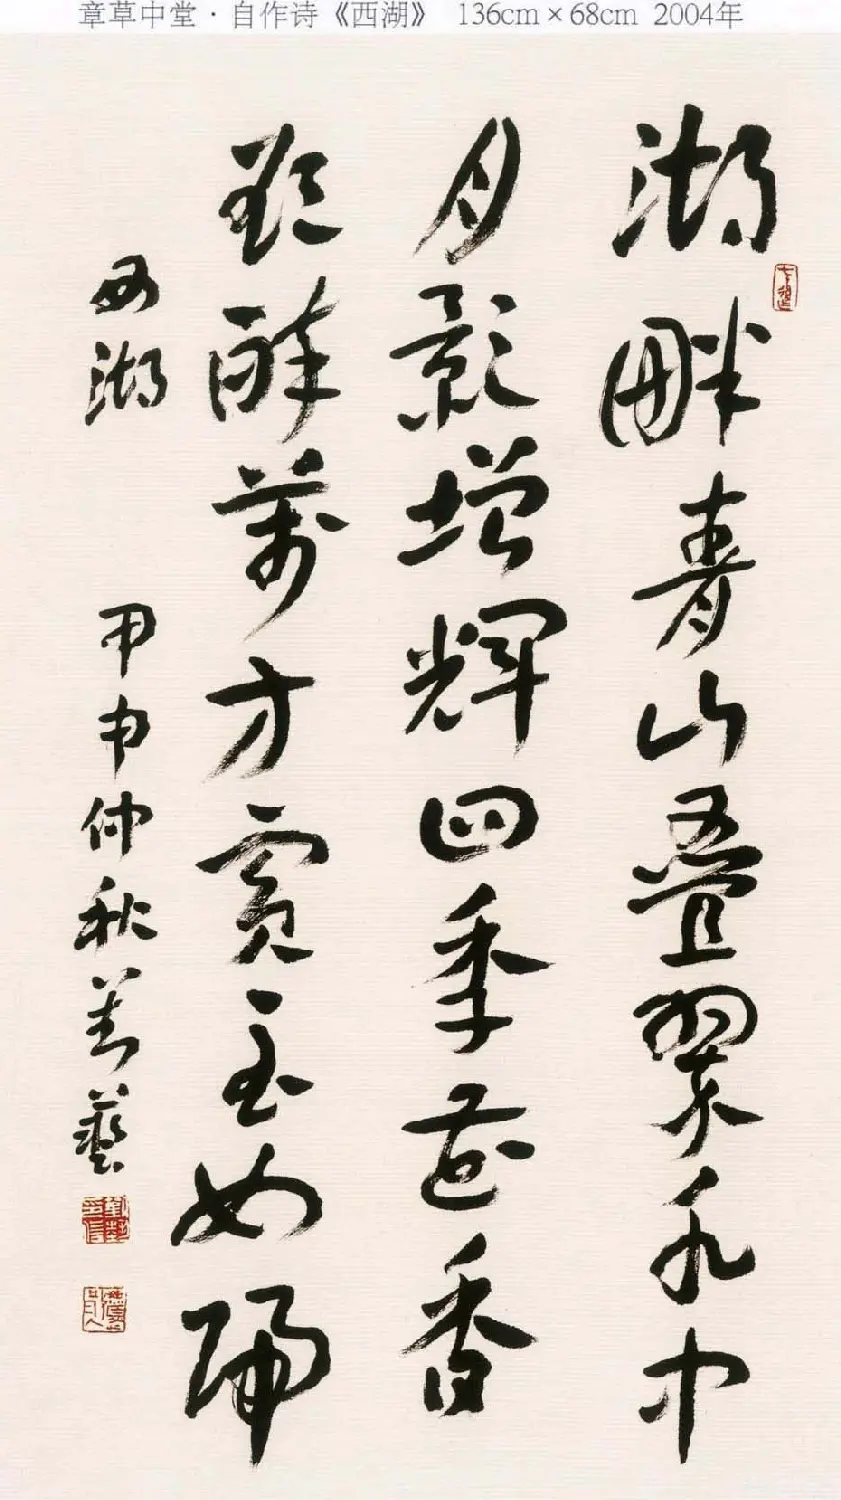 章草中堂·自作诗《西湖》 136cm×68cm 2004年
湖畔青山疊翠水中
月影增輝四季花香
醉萬方賓至如歸
西湖 甲申仲秋 藝